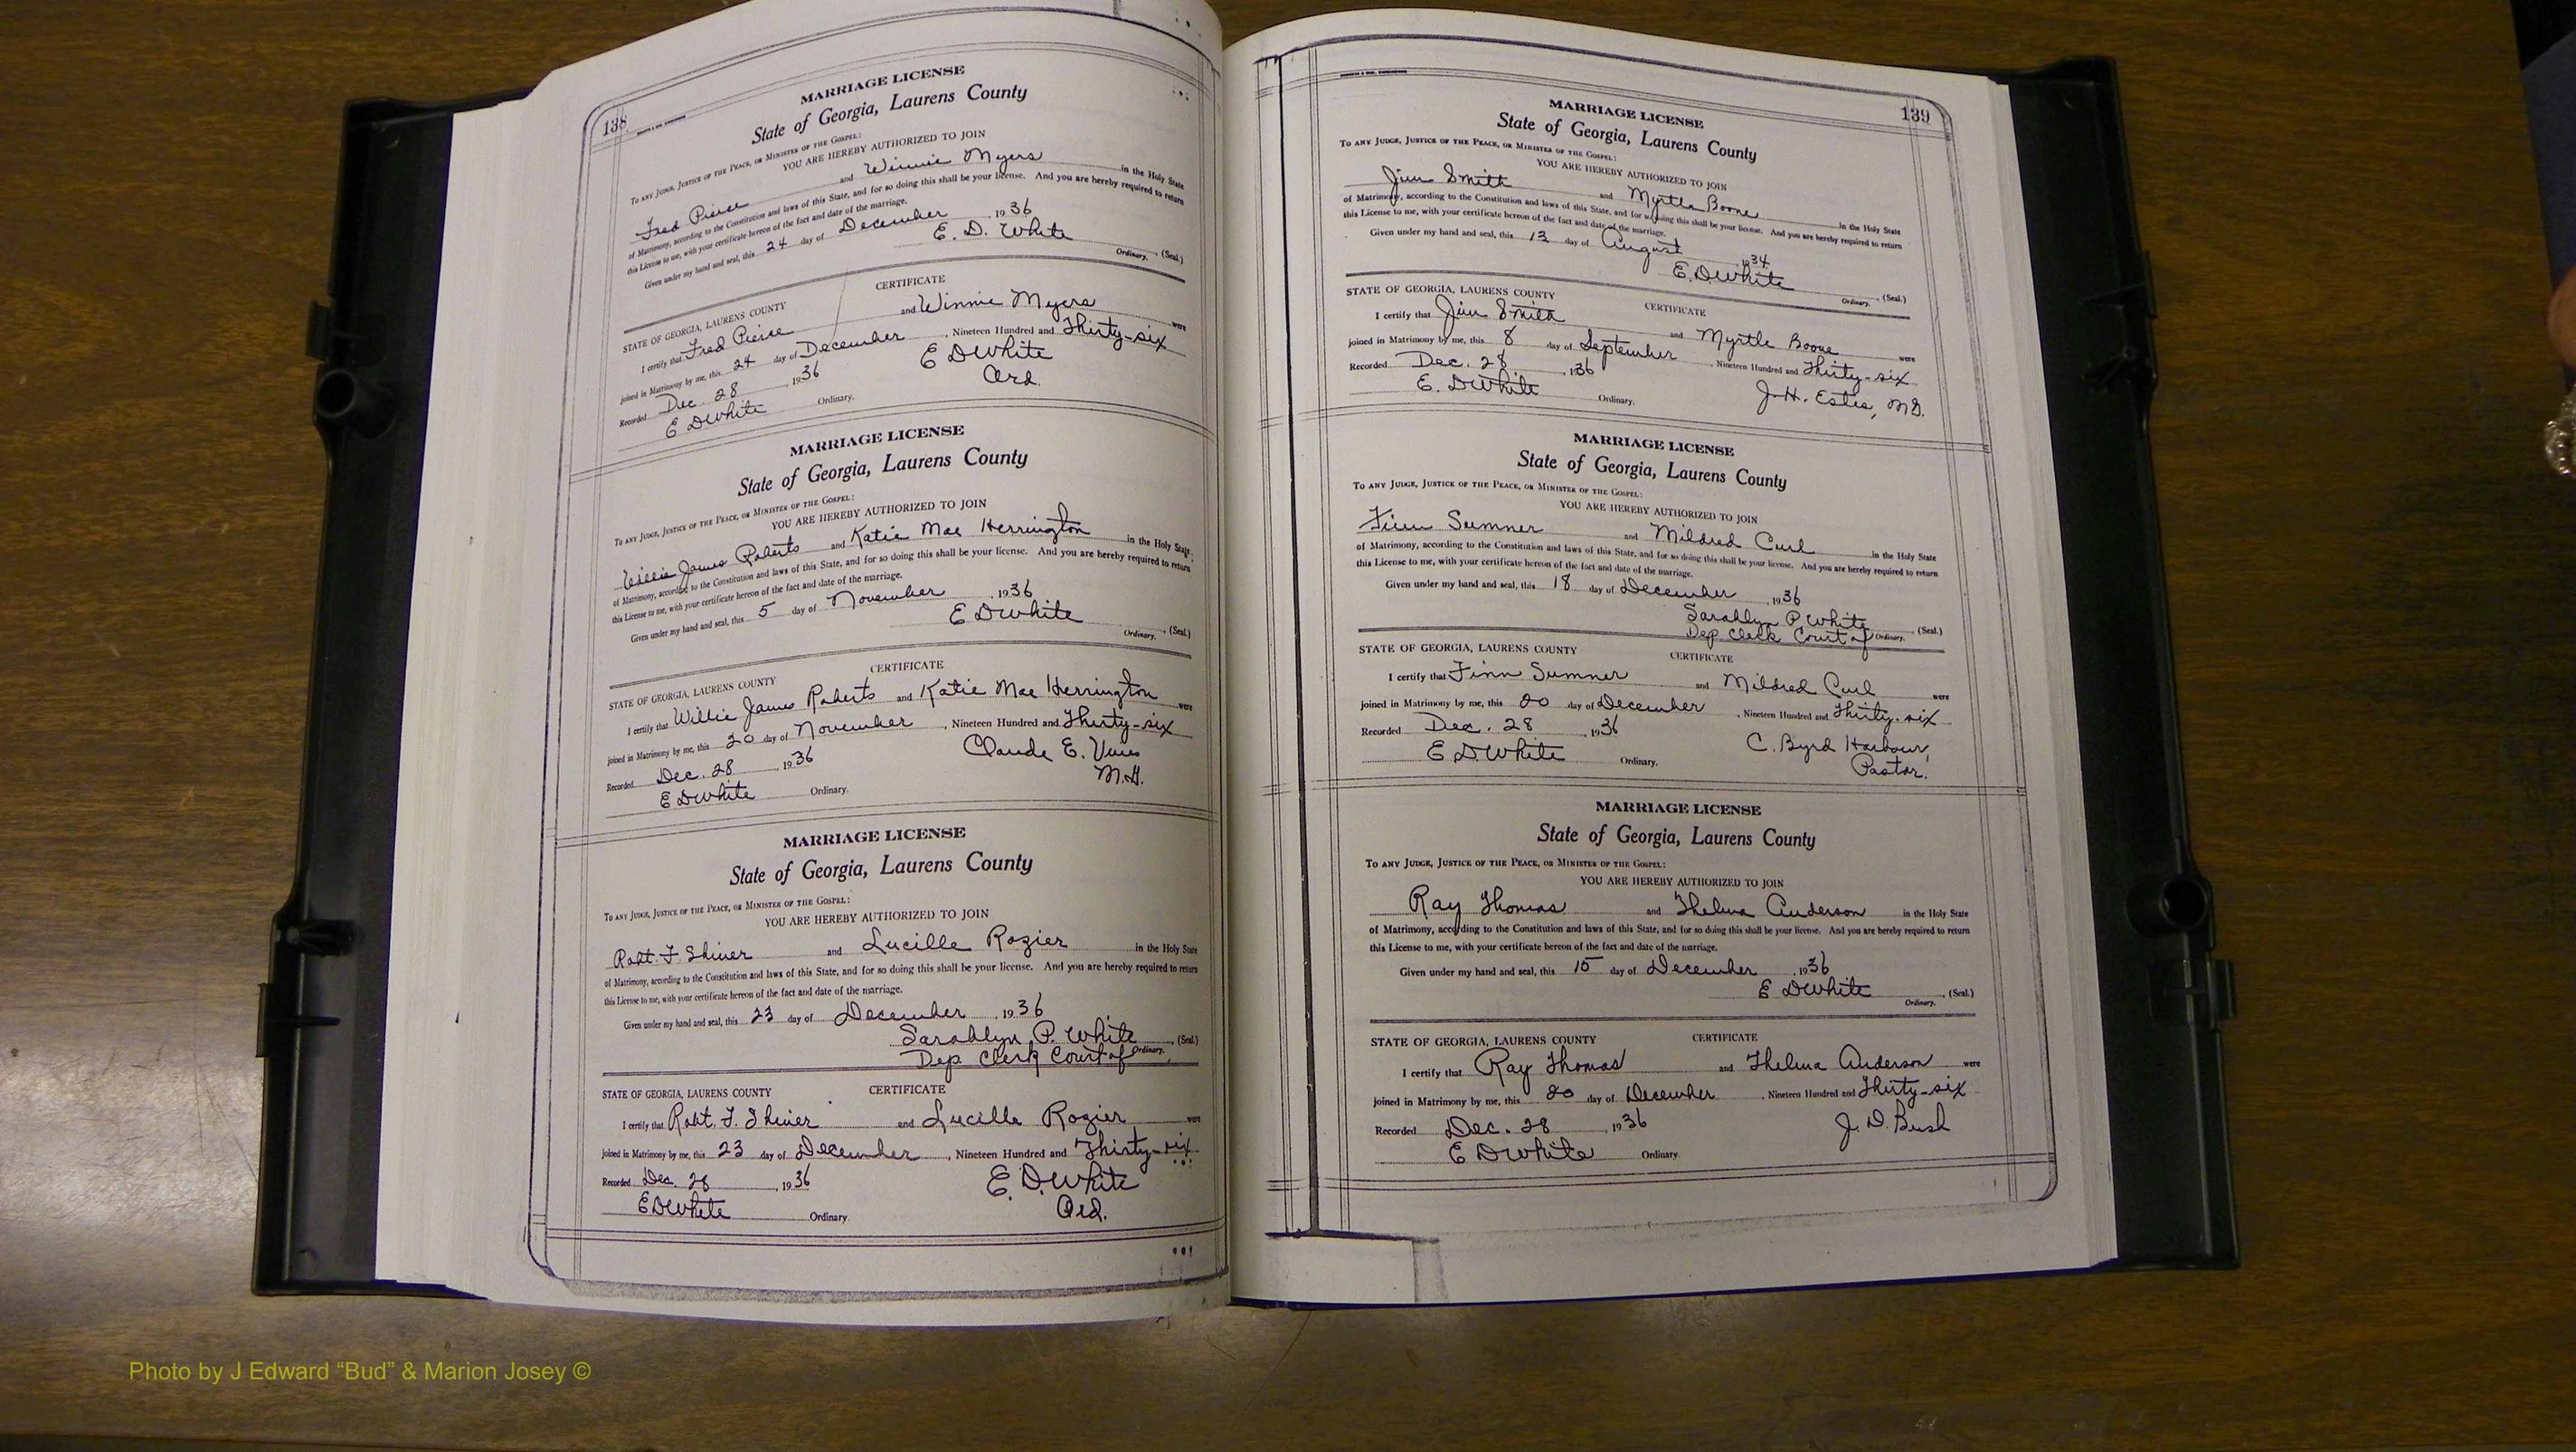 138
MARRIAGE LICENSE
State of Georgia, Laurens County
To any Judge, Justice of the Peace, or Minister of the Gospel:
YOU ARE HEREBY AUTHORIZED TO JOIN
Fred Pierce and Winnie Myers in the Holy State
of Matrimony, according to the Constitution and laws of this State, and for so doing this shall be your license. And you are hereby required to return
this License to me, with your certificate hereon of the fact and date of the marriage.
Given under my hand and seal, this 24 day of December, 1936
E. D. White (Seal.)
Ordinary.
CERTIFICATE
STATE OF GEORGIA, LAURENS COUNTY
I certify that Fred Pierce and Winnie Myers were
joined in Matrimony by me, this 24 day of December, Nineteen Hundred and Thirty-six
Recorded Dec. 28, 1936 E D White
E D White Ordinary. Ord.
MARRIAGE LICENSE
State of Georgia, Laurens County
To any Judge, Justice of the Peace, or Minister of the Gospel:
YOU ARE HEREBY AUTHORIZED TO JOIN
Willie James Roberts and Katie Mae Herrington in the Holy State
of Matrimony, according to the Constitution and laws of this State, and for so doing this shall be your license. And you are hereby required to return
this License to me, with your certificate hereon of the fact and date of the marriage.
Given under my hand and seal, this 5 day of November, 1936
E D White (Seal.)
Ordinary.
CERTIFICATE
STATE OF GEORGIA, LAURENS COUNTY
I certify that Willie James Roberts and Katie Mae Herrington were
joined in Matrimony by me, this 20 day of November, Nineteen Hundred and Thirty-six
Recorded Dec. 28, 1936 Claude E.
E D White Ordinary. M.G.
MARRIAGE LICENSE
State of Georgia, Laurens County
To any Judge, Justice of the Peace, or Minister of the Gospel:
YOU ARE HEREBY AUTHORIZED TO JOIN
Robt. F. Shiver and Lucille Rozier in the Holy State
of Matrimony, according to the Constitution and laws of this State, and for so doing this shall be your license. And you are hereby required to return
this License to me, with your certificate hereon of the fact and date of the marriage.
Given under my hand and seal, this 23 day of December, 1936
Sarahlyn P. White (Seal)
Dep. Clerk Court of Ordinary.
STATE OF GEORGIA, LAURENS COUNTY CERTIFICATE
I certify that Robt. F. Shiver and Lucille Rozier were
joined in Matrimony by me, this 23 day of December, Nineteen Hundred and Thirty-six
Recorded Dec. 28, 1936 E. D. White
E D White Ordinary. Ord.
139
MARRIAGE LICENSE
State of Georgia, Laurens County
To any Judge, Justice of the Peace, or Minister of the Gospel:
YOU ARE HEREBY AUTHORIZED TO JOIN
Jim Smith and Myrtle Boone in the Holy State
of Matrimony, according to the Constitution and laws of this State, and for so doing this shall be your license. And you are hereby required to return
this License to me, with your certificate hereon of the fact and date of the marriage.
Given under my hand and seal, this 13 day of August 34
E. D White (Seal.)
Ordinary.
STATE OF GEORGIA, LAURENS COUNTY CERTIFICATE
I certify that Jim Smith and Myrtle Boone were
joined in Matrimony by me, this 8 day of September, Nineteen Hundred and Thirty-six
Recorded Dec. 28, 1936
E. D White Ordinary. J. H. Estes, M G.
MARRIAGE LICENSE
State of Georgia, Laurens County
To any Judge, Justice of the Peace, or Minister of the Gospel:
YOU ARE HEREBY AUTHORIZED TO JOIN
Finn Sumner and Mildred Curl in the Holy State
of Matrimony, according to the Constitution and laws of this State, and for so doing this shall be your license. And you are hereby required to return
this License to me, with your certificate hereon of the fact and date of the marriage.
Given under my hand and seal, this 18 day of December, 1936
Sarahlyn P White (Seal.)
Dep Clerk Court of Ordinary.
STATE OF GEORGIA, LAURENS COUNTY CERTIFICATE
I certify that Finn Sumner and Mildred Curl were
joined in Matrimony by me, this 20 day of December, Nineteen Hundred and Thirty-six
Recorded Dec. 28, 1936 C. Byrd Harbour,
E D White Ordinary. Pastor.
MARRIAGE LICENSE
State of Georgia, Laurens County
To any Judge, Justice of the Peace, or Minister of the Gospel:
YOU ARE HEREBY AUTHORIZED TO JOIN
Ray Thomas and Thelma Anderson in the Holy State
of Matrimony, according to the Constitution and laws of this State, and for so doing this shall be your license. And you are hereby required to return
this License to me, with your certificate hereon of the fact and date of the marriage.
Given under my hand and seal, this 15 day of December, 1936
E D White (Seal.)
Ordinary.
STATE OF GEORGIA, LAURENS COUNTY CERTIFICATE
I certify that Ray Thomas and Thelma Anderson were
joined in Matrimony by me, this 20 day of December, Nineteen Hundred and Thirty-six
Recorded Dec. 28, 1936 J. D. Bush
E D White Ordinary.
Photo by J Edward “Bud” & Marion Josey ©